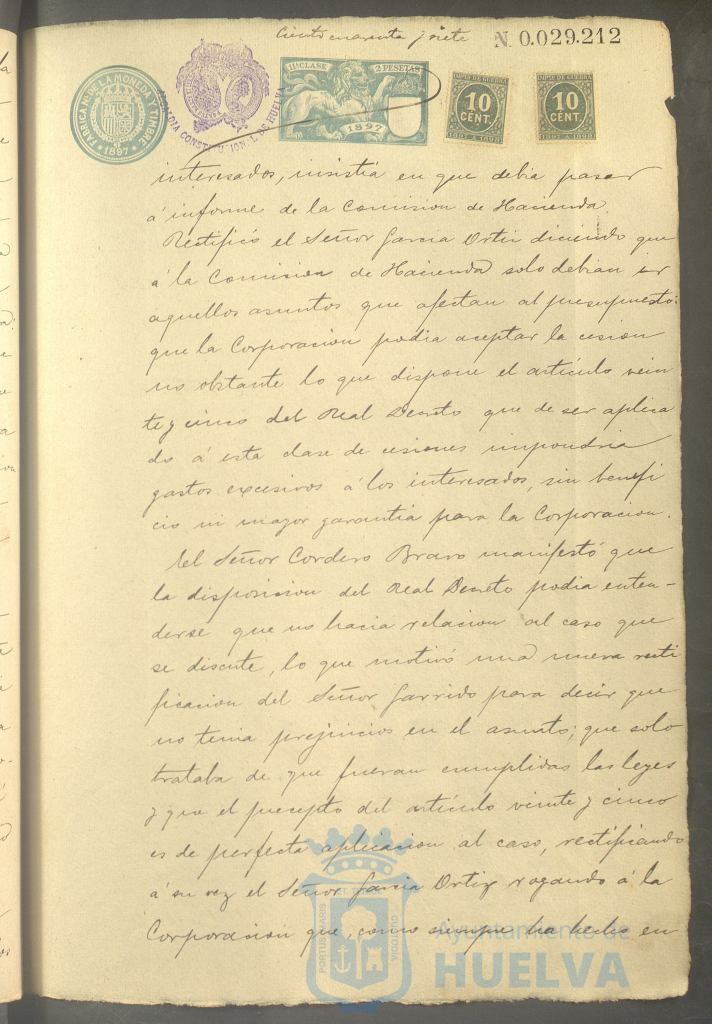 Ciento cuarenta y siete
N. 0.029.212
FABRICA NAL DE LA MONEDA Y TIMBRE
1897
ALCALDIA CONSTITUCIONAL DE HUELVA
11ª CLASE
2 PESETAS
1897
IMPTO DE GUERRA
10
CENT.
1897 A 1898
IMPTO DE GUERRA
10
CENT.
1897 A 1898
interesados, insistia en que debia pasar
á informe de la Comision de Hacienda.
Rectificó el Señor Garcia Ortiz diciendo que
á la Comision de Hacienda solo debian ir
aquellos asuntos que afectan al presupuesto:
que la Corporacion podia aceptar la cesion
no obstante lo que dispone el artículo vein
te y cinco del Real Decreto que de ser aplica
do á esta clase de cesiones impondria
gastos excesivos á los interesados, sin benefi
cio ni mayor garantia para la Corporacion.
El Señor Cordero Bravo manifestó que
la disposicion del Real Decreto podia enten-
derse que no hacia relacion al caso que
se discute, lo que motivó una nueva recti
ficacion del Señor Garrido para decir que
no tenia prejuicios en el asunto; que solo
trataba de que fueran cumplidas las leyes
y que el precepto del artículo veinte y cinco
es de perfecta aplicacion al caso, rectificando
á su vez el Señor Garcia Ortiz rogando á la
Corporacion que, como siempre ha hecho en
PORTUS MARIS
ET TERRAE
CUSTODIA
Ayuntamiento de
HUELVA